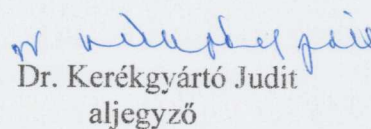 Dr. Kerékgyártó Judit
aljegyző